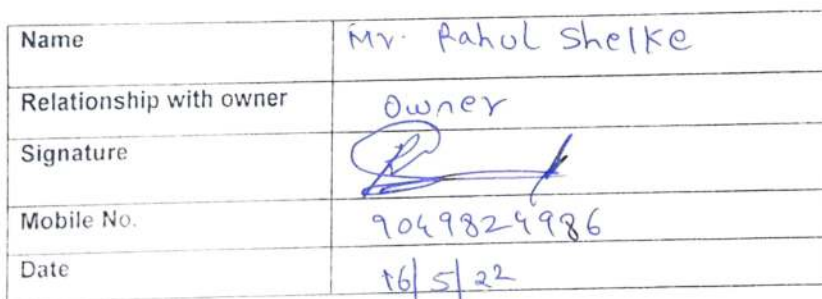 Name Mr. Rahul Shelke
Relationship with owner Owner
Signature
Mobile No. 9049824986
Date 16/5/22